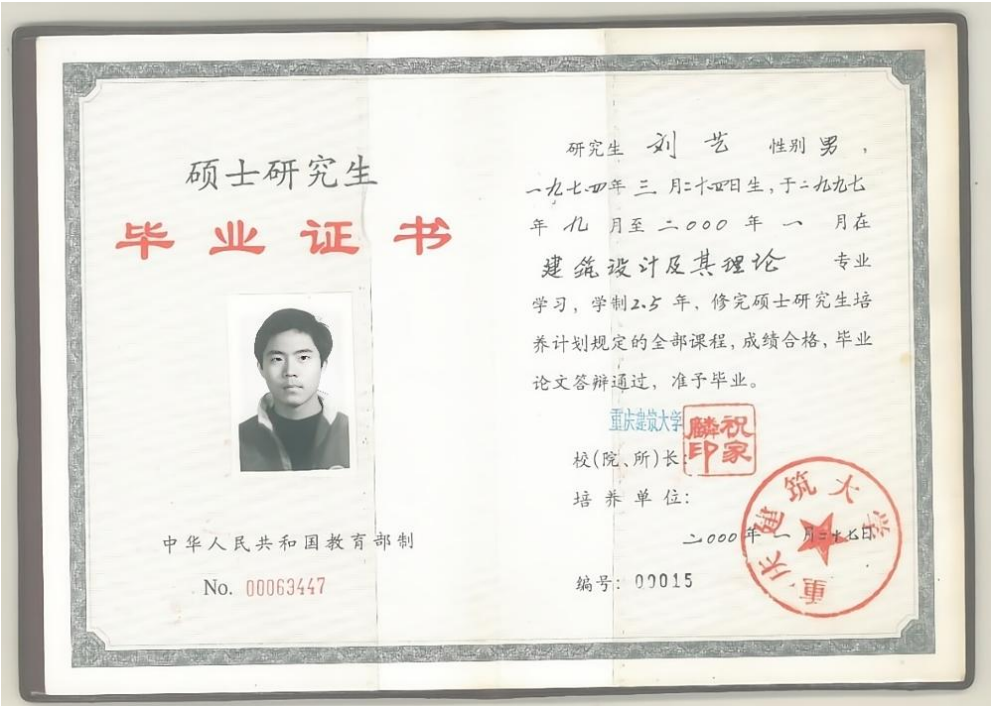 硕士研究生
毕业证书
中华人民共和国教育部制
No. 00063447
研究生 刘艺 性别 男，
一九七四年 三 月二十四日生，于二九九七
年 九 月至 二000 年 一 月在
建筑设计及其理论 专业
学习，学制2.5 年、修完硕士研究生培
养计划规定的全部课程，成绩合格，毕业
论文答辩通过，准予毕业。
重庆建筑大学
校(院、所)长:
祝家麟印
培养单位:
重庆建筑大学
二000年 一 月二十七日
编号: 00015